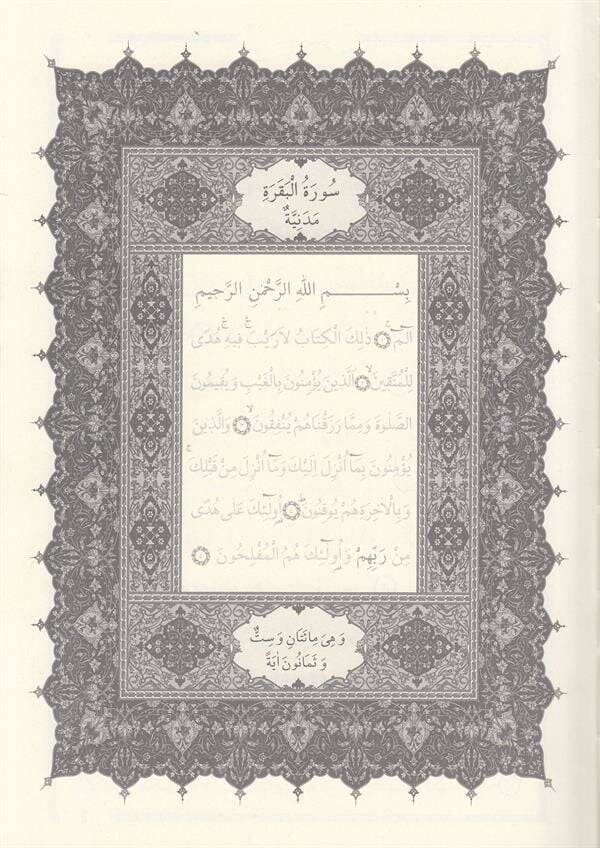 سُورَةُ الْبَقَرَةِ
مَدَنِيَّةٌ
بِسْــــــــمِ اللهِ الرَّحْمٰنِ الرَّحِيمِ
الٓمٓ ۚ ﴿١﴾ ذٰلِكَ الْكِتَابُ لَا رَيْبَ ۚۛ فِيهِ ۚۛ هُدًى
لِلْمُتَّقِينَۙ ﴿٢﴾ اَلَّذِينَ يُؤْمِنُونَ بِالْغَيْبِ وَيُقِيمُونَ
الصَّلٰوةَ وَمِمَّا رَزَقْنَاهُمْ يُنْفِقُونَۙ ﴿٣﴾ وَالَّذِينَ
يُؤْمِنُونَ بِمَٓا اُنْزِلَ اِلَيْكَ وَمَٓا اُنْزِلَ مِنْ قَبْلِكَۚ
وَبِالْاٰخِرَةِ هُمْ يُوقِنُونَۜ ﴿٤﴾ اُو۬لٰٓئِكَ عَلٰى هُدًى
مِنْ رَبِّهِمْ وَاُو۬لٰٓئِكَ هُمُ الْمُفْلِحُونَ ﴿٥﴾
وَهِىَ مِائَتَانِ وَسِتٌّ
وَثَمَانُونَ اٰيَةً